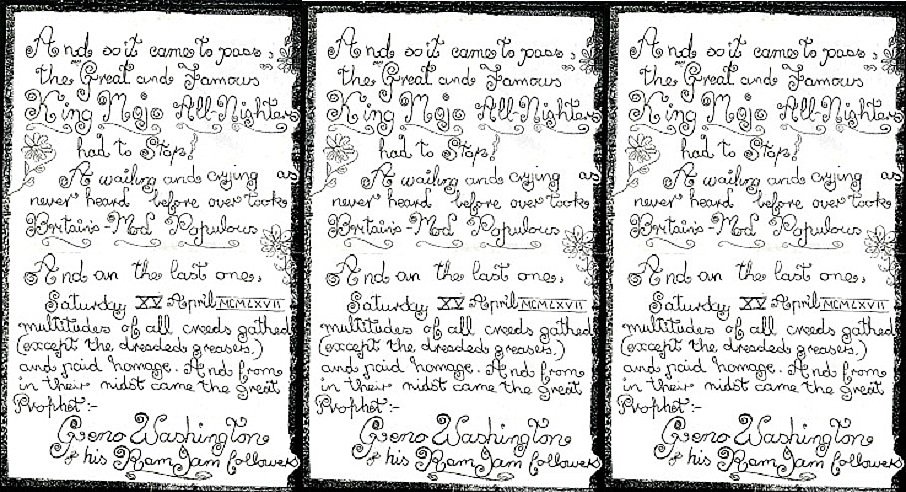 And so it came to pass,
the Great and Famous
King Mojo All-Nighters
had to Stop!
A wailing and crying as
never heard before overtook
Britains-Mod Populous
And on the last one,
Saturday XV April MCMLXVII
multitudes of all creeds gathed
(except the dreaded greasers.)
and paid homage. And from
in their midst came the great
Prophet:-
Geno Washington
& his Ram Jam followers
And so it came to pass,
the Great and Famous
King Mojo All-Nighters
had to Stop!
A wailing and crying as
never heard before overtook
Britains-Mod Populous
And on the last one,
Saturday XV April MCMLXVII
multitudes of all creeds gathed
(except the dreaded greasers.)
and paid homage. And from
in their midst came the great
Prophet:-
Geno Washington
& his Ram Jam followers
And so it came to pass,
the Great and Famous
King Mojo All-Nighters
had to Stop!
A wailing and crying as
never heard before overtook
Britains-Mod Populous
And on the last one,
Saturday XV April MCMLXVII
multitudes of all creeds gathed
(except the dreaded greasers.)
and paid homage. And from
in their midst came the great
Prophet:-
Geno Washington
& his Ram Jam followers